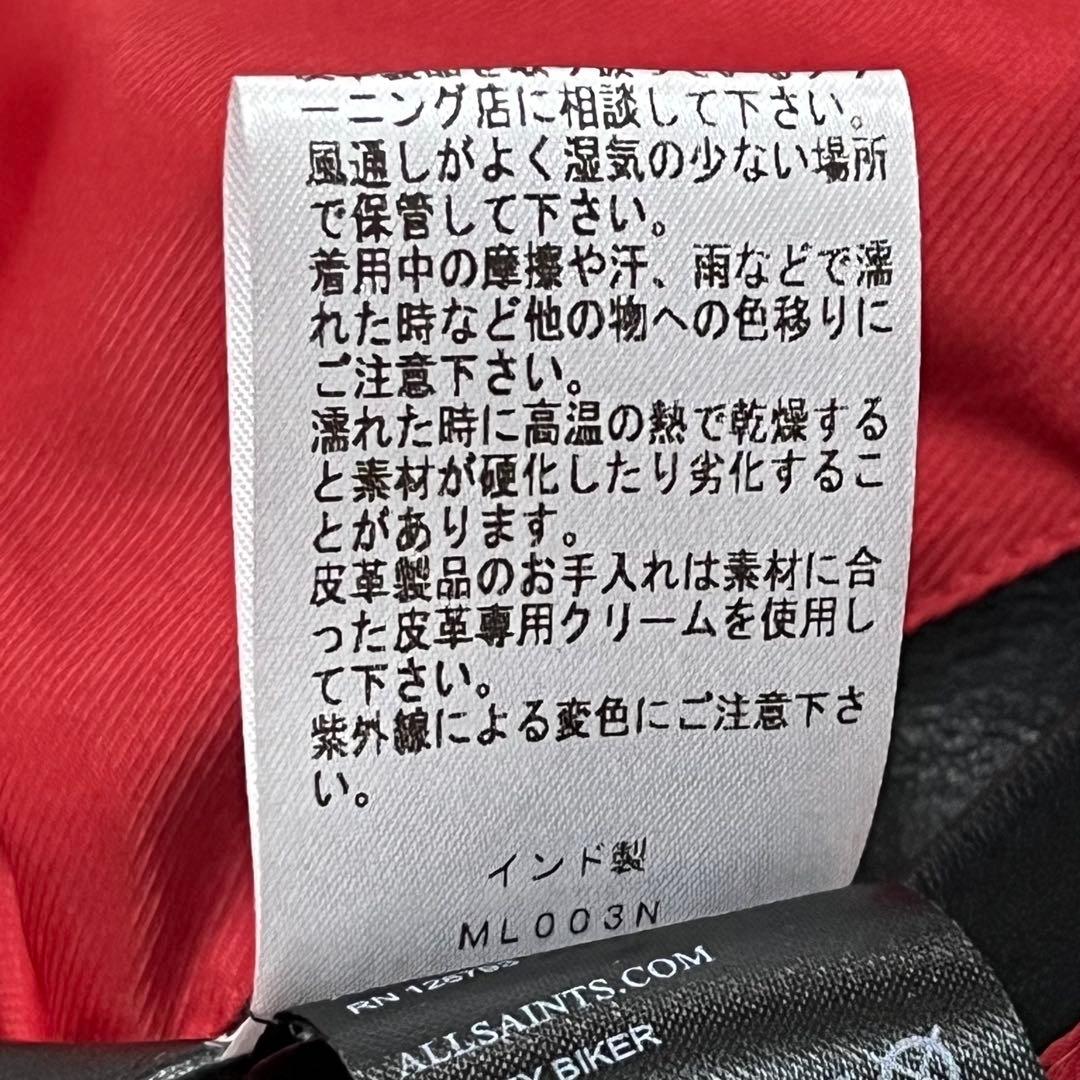 ーニング店に相談して下さい。
風通しがよく湿気の少ない場所
で保管して下さい。
着用中の摩擦や汗、雨などで濡
れた時など他の物への色移りに
ご注意下さい。
濡れた時に高温の熱で乾燥する
と素材が硬化したり劣化するこ
とがあります。
皮革製品のお手入れは素材に合
った皮革専用クリームを使用し
て下さい。
紫外線による変色にご注意下さ
い。
インド製
ML003N
RN
ALLSAINTS.COM
BIKER